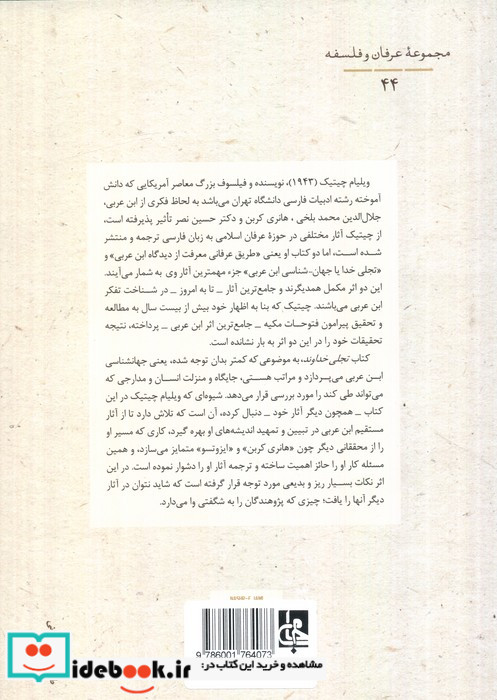 مجموعهٔ عرفان و فلسفه
۴۴
ویلیام چیتیک (۱۹۴۳)، نویسنده و فیلسوف بزرگ معاصر آمریکایی که دانش
آموخته رشته ادبیات فارسی دانشگاه تهران می‌باشد به لحاظ فکری از ابن عربی،
جلال‌الدین محمد بلخی ، هانری کربن و دکتر حسین نصر تأثیر پذیرفته است،
از چیتیک آثار مختلفی در حوزهٔ عرفان اسلامی به زبان فارسی ترجمه و منتشر
شده است، اما دو کتاب او یعنی «طریق عرفانی معرفت از دیدگاه ابن عربی» و
«تجلی خدا یا جهان-شناسی ابن عربی» جزء مهمترین آثار وی به شمار می‌آیند.
این دو اثر مکمل همدیگرند و جامع‌ترین آثار ــ تا به امروز ــ در شناخت تفکر
ابن عربی می‌باشند. چیتیک که بنا به اظهار خود بیش از بیست سال به مطالعه
و تحقیق پیرامون فتوحات مکیه ــ جامع‌ترین اثر ابن عربی ــ پرداخته، نتیجه
تحقیقات خود را در این دو اثر به بار نشانده است.
کتاب تجلی خداوند، به موضوعی که کمتر بدان توجه شده، یعنی جهانشناسی
ابن عربی می‌پردازد و مراتب هستی، جایگاه و منزلت انسان و مدارجی که
می‌تواند طی کند را مورد بررسی قرار می‌دهد. شیوه‌ای که ویلیام چیتیک در این
کتاب ــ همچون دیگر آثار خود ــ دنبال کرده، آن است که تلاش دارد تا از آثار
مستقیم ابن عربی در تبیین و تمهید اندیشه‌های او بهره گیرد، کاری که مسیر او
را از محققانی دیگر چون «هانری کربن» و «ایزوتسو» متمایز می‌سازد، و همین
مسئله کار او را حائز اهمیت ساخته و ترجمه آثار او را دشوار نموده است. در این
اثر نکات بسیار ریز و بدیعی مورد توجه قرار گرفته است که شاید نتوان در آثار
دیگر آنها را یافت؛ چیزی که پژوهندگان را به شگفتی وا می‌دارد.
9 786001 764073
مشاهده و خرید این کتاب در:
idebook.ir